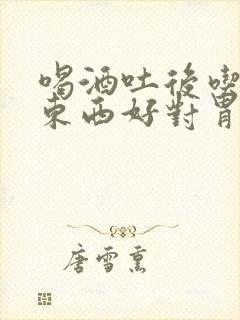 喝酒吐後喫
東西好對胃
唐雪熏